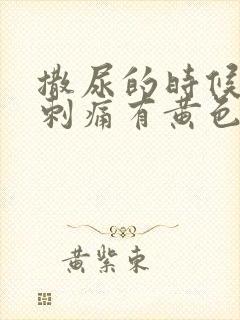 撒尿的時候
刺痛有黄色
黄紫東